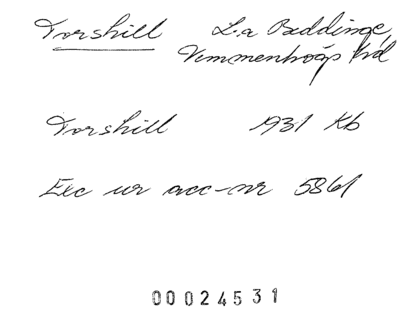 Torshill L:a Beddinge,
Vemmenhögs hd
Torshill 1931 Kb
Exc ur acc-nr 5861
00024531